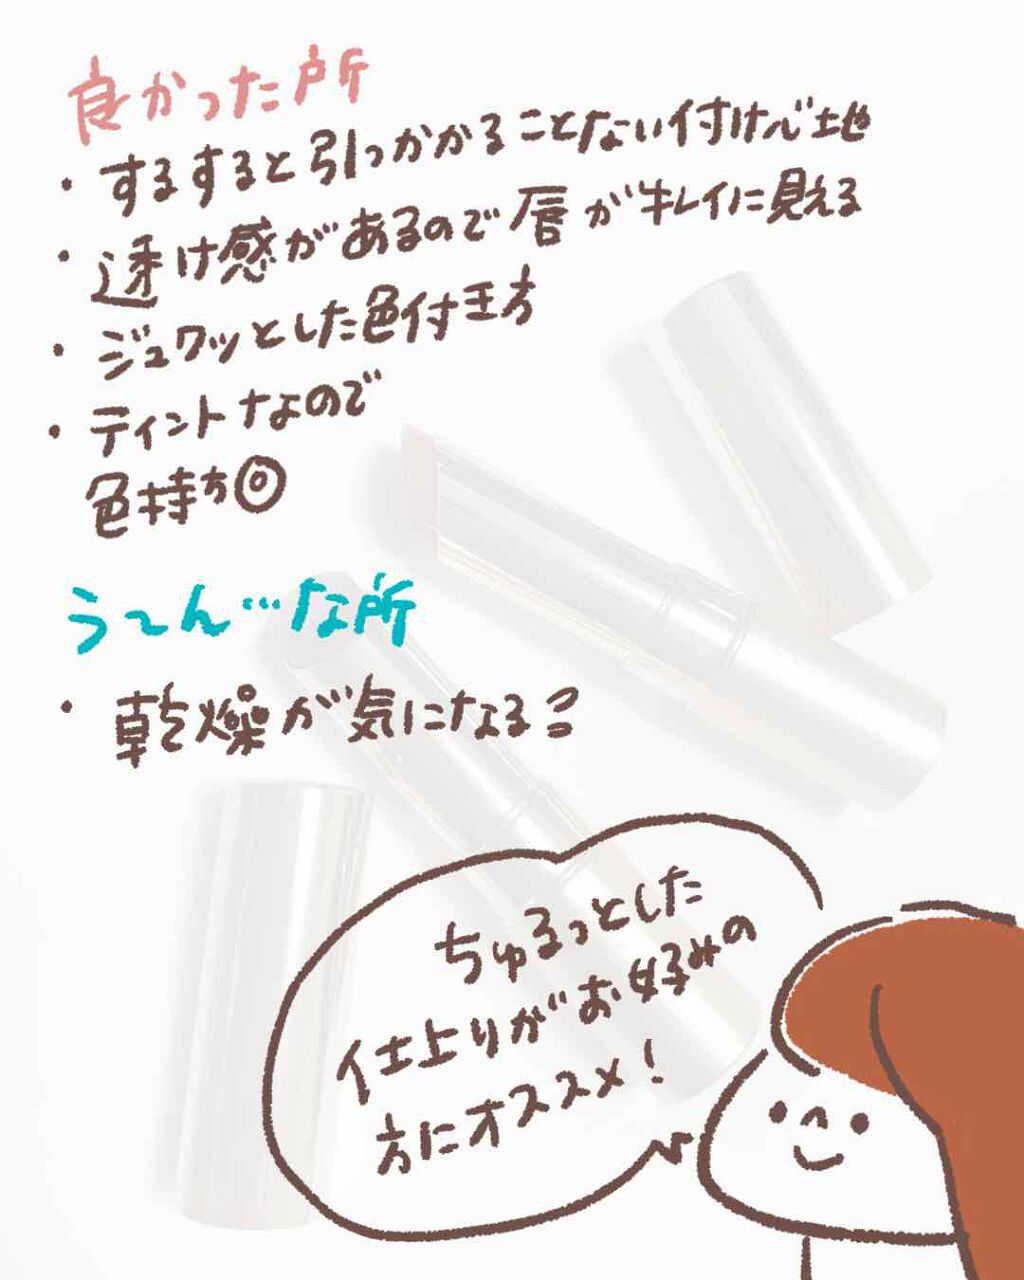 良かった所
・するすると引っかかることない付け心地
・透け感があるので唇がキレイに見える
・ジュワッとした色付き方
・ティントなので
色持ち◎
う〜ん…な所
・乾燥が気になる
ちゅるっとした
仕上りがお好みの
方にオススメ！